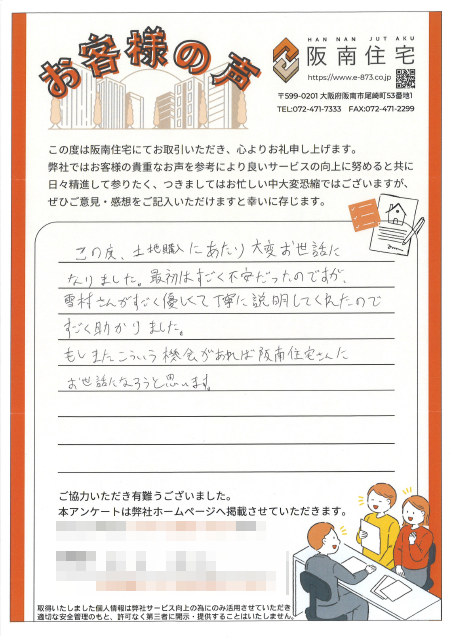 お客様の声
HAN NAN JUTAKU
阪南住宅
https://www.e-873.co.jp
〒599-0201 大阪府阪南市尾崎町53番地1
TEL:072-471-7333 FAX:072-471-2299
この度は阪南住宅にてお取引いただき、心よりお礼申し上げます。
弊社ではお客様の貴重なお声を参考により良いサービスの向上に努めると共に
日々精進して参りたく、つきましてはお忙しい中大変恐縮ではございますが、
ぜひご意見・感想をご記入いただけますと幸いに存じます。
この度、土地購入にあたり大変お世話に
なりました。最初はすごく不安だったのですが、
雪村さんがすごく優しくて丁寧に説明してくれたので
すごく助かりました。
もしまたこういう機会があれば阪南住宅さんに
お世話になろうと思います。
ご協力いただき有難うございました。
本アンケートは弊社ホームページへ掲載させていただきます。
取得いたしました個人情報は弊社サービス向上の為にのみ活用させていただき
適切な安全管理のもと、許可なく第三者に開示・提供することはいたしません。